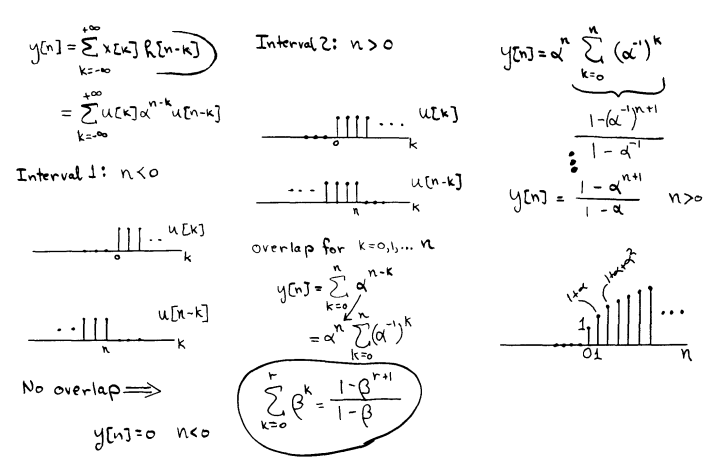 y[n] = Σ_{k=-∞}^{+∞} x[k] h[n-k]
= Σ_{k=-∞}^{+∞} u[k] α^{n-k} u[n-k]
Interval 1: n<0
u[k]
0 k
u[n-k]
n k
No overlap ⟹
y[n]=0 n<0
Interval 2: n>0
u[k]
0 k
u[n-k]
n k
overlap for k=0,1,... n
y[n] = Σ_{k=0}^{n} α^{n-k}
= α^n Σ_{k=0}^{n} (α^{-1})^k
Σ_{k=0}^{r} β^k = (1-β^{r+1})/(1-β)
y[n] = α^n Σ_{k=0}^{n} (α^{-1})^k
(1-(α^{-1})^{n+1})/(1-α^{-1})
y[n] = (1-α^{n+1})/(1-α) n>0
1+α
1+α+α^2
1
0 1 n